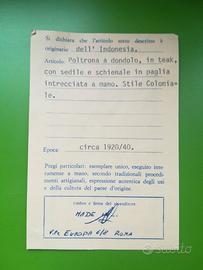 Si dichiara che l'articolo sotto descritto è
originario dell'Indonesia.
Articolo: Poltrona a dondolo, in teak,
con sedile e schienale in paglia
intrecciata a mano. Stile Colonia-
le.
Epoca: circa 1920/40.
Pregi particolari: esemplare unico, eseguito intera-
mente a mano, secondo tradizionali procedi-
menti artigianali, espressione autentica degli usi
e della cultura del paese d'origine.
timbro e firma del rivenditore
MADE
VIA EUROPA ROMA
subito